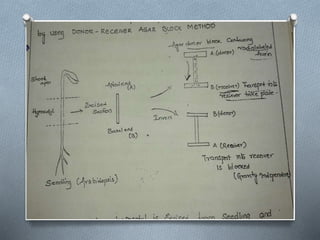 by using DONOR - RECEIVER AGAR BLOCK METHOD
Agar donor block Containing
radiolabeled
Auxin
A (donor)
Shoot
apex
Apical end
(A)
B (receiver) Transport into
receiver take place
Hypocotyl
Excised
Section
Invert
B (donor)
Basal end
(B)
A (Receiver)
Transport into receiver
is blocked
(Gravity independent)
Seedling (Arabidopsis)
is Excised from Seedling and